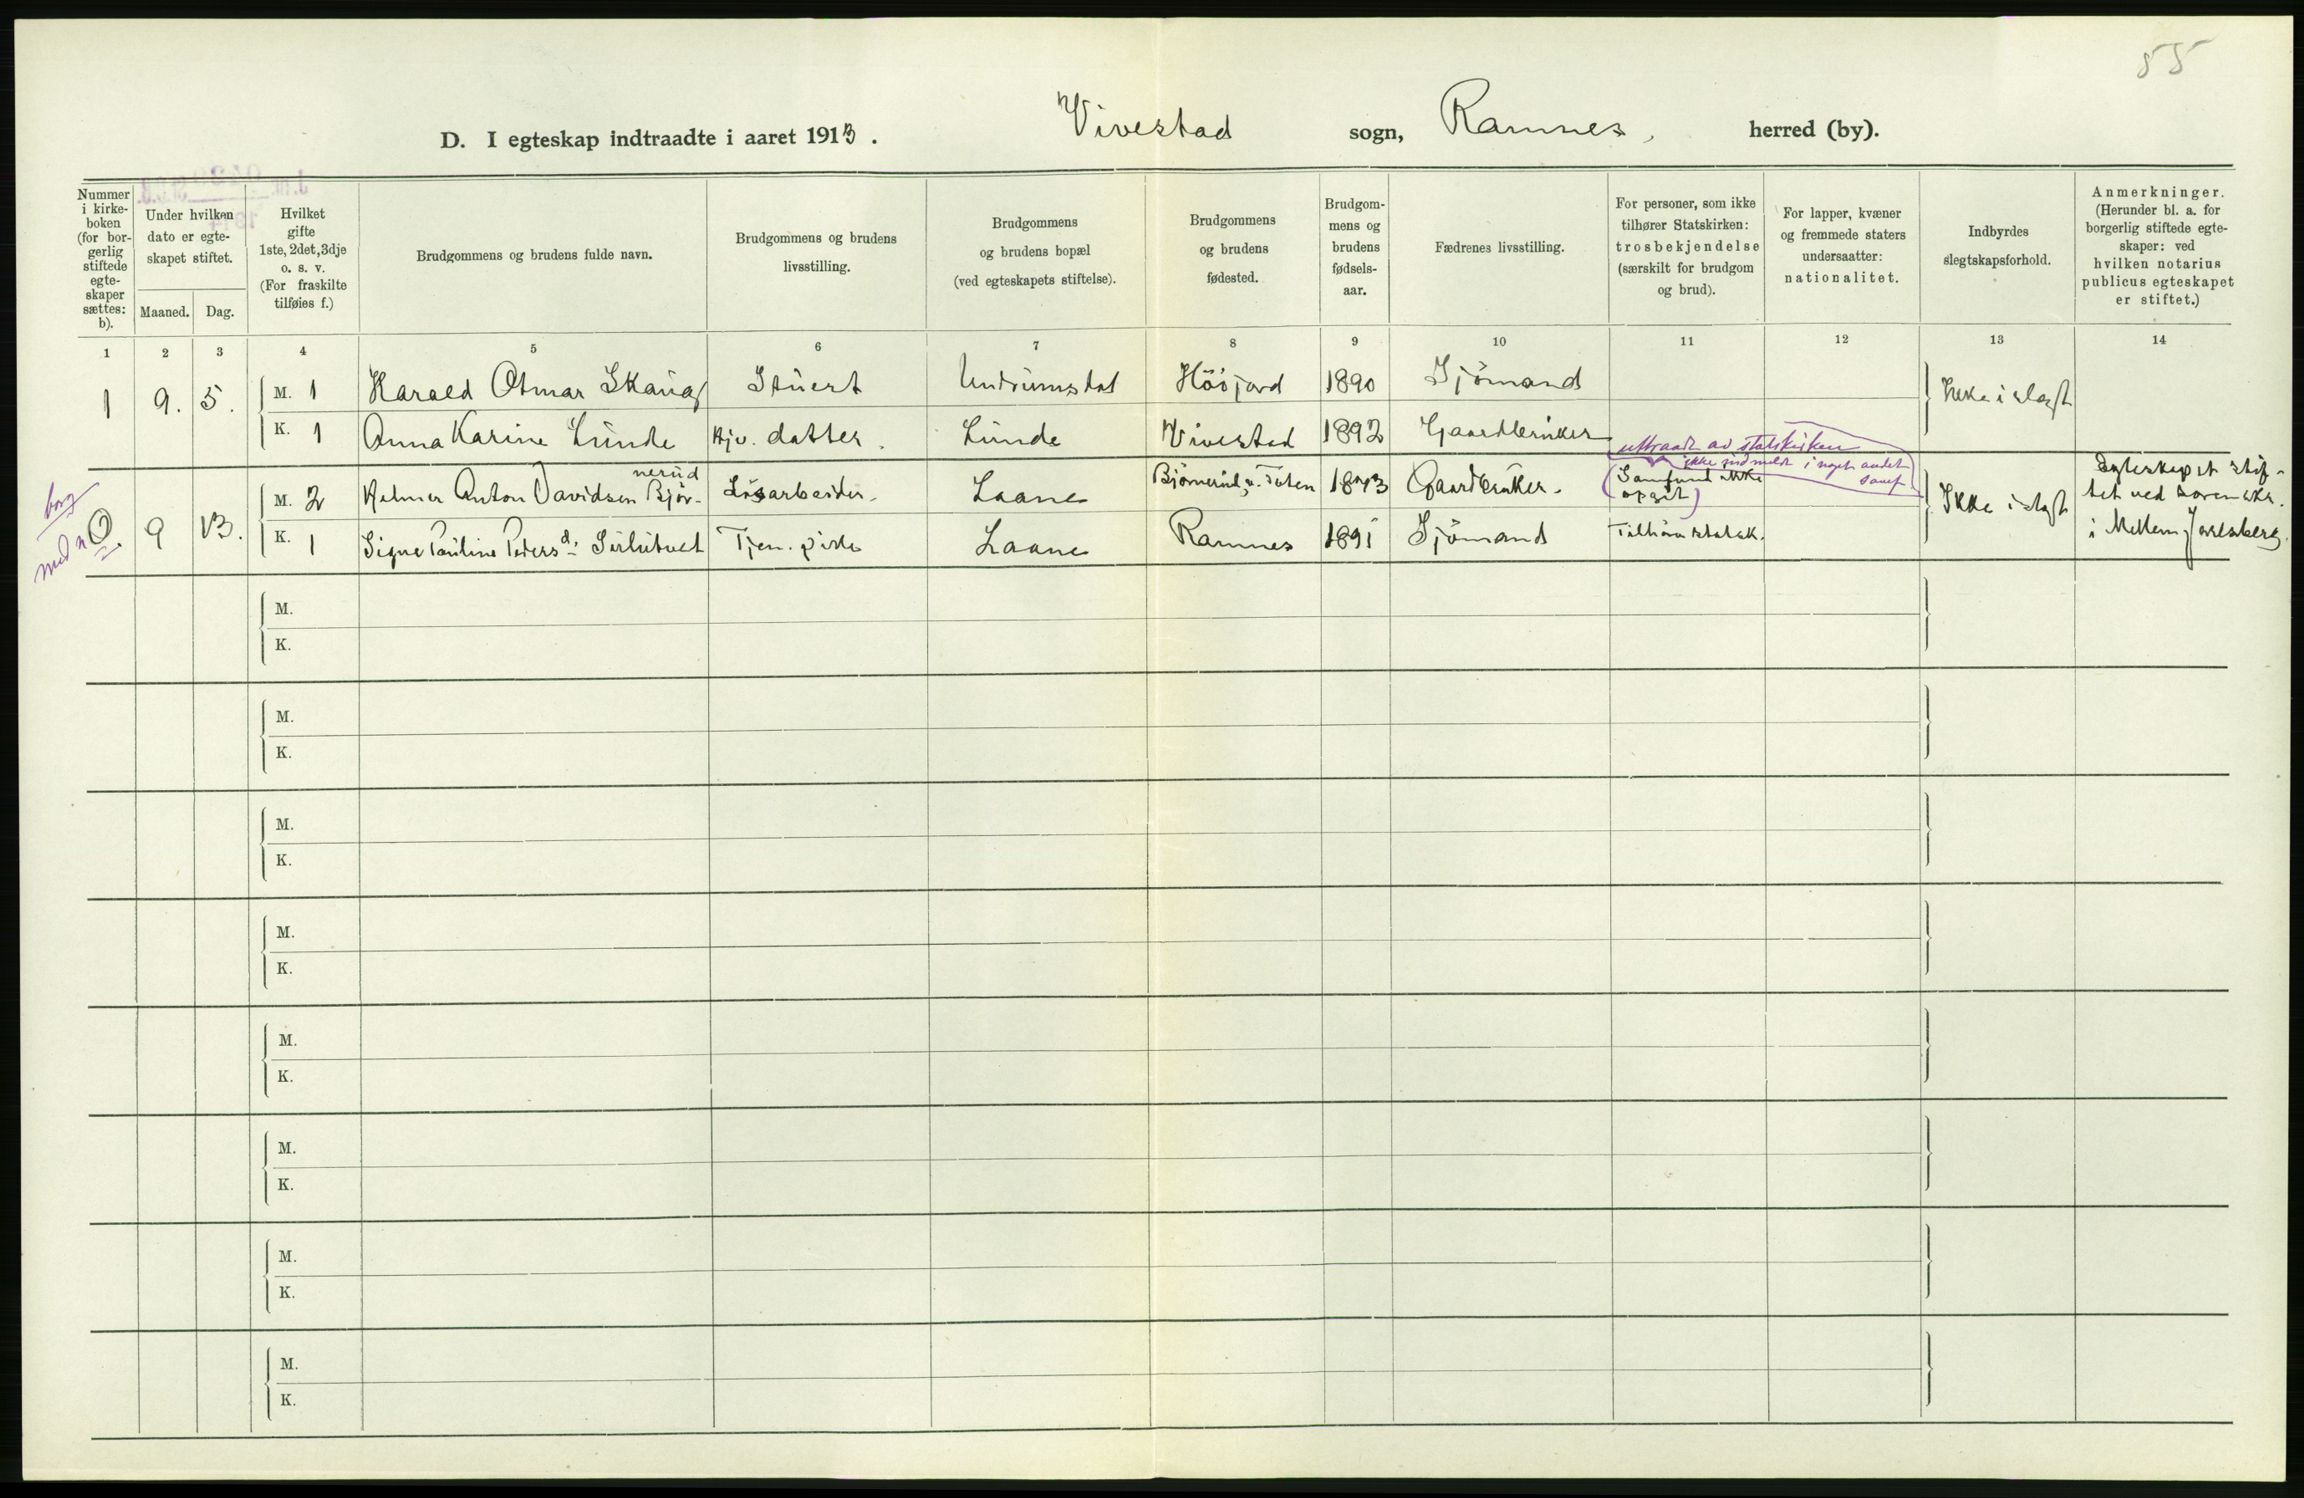 55
D. I egteskap indtraadte i aaret 1913. Vivestad sogn, Ramnes, herred (by).
Nummer i kirke-boken (for bor-gerlig stiftede egte-skaper sættes: b).
Under hvilken dato er egte-skapet stiftet.
Maaned. Dag.
Hvilket gifte 1ste, 2det, 3dje o. s. v. (For fraskilte tilføies f.)
Brudgommens og brudens fulde navn.
Brudgommens og brudens livsstilling.
Brudgommens og brudens bopæl (ved egteskapets stiftelse).
Brudgommens og brudens fødested.
Brudgom-mens og brudens fødsels-aar.
Fædrenes livsstilling.
For personer, som ikke tilhører Statskirken: trosbekjendelse (særskilt for brudgom og brud).
For lapper, kvæner og fremmede staters undersaatter: nationalitet.
Indbyrdes slegtskapsforhold.
Anmerkninger. (Herunder bl. a. for borgerlig stiftede egte-skaper: ved hvilken notarius publicus egteskapet er stiftet.)
1 2 3 4 5 6 7 8 9 10 11 12 13 14
1 9. 5. M. 1 Harald Otmar Skaug Stuert Undrumsdal Höijord 1890 Sjömand Ikke i slegt
K. 1 Anna Karine Lunde Gjv. datter. Lunde Vivestad 1892 Gaardbruker
uttraadt av statskirken
ikke indmeldt i noget andet samf.
borg
med n
0. 9 13. M. 2 Helmer Anton Davidsen Björ-nerud Lösarbeider. Laane Bjönerud, v. Toten 1873 Gaardbruker. (Samfund ikke opgit) Ikke i slegt
K. 1 Signe Pauline Pedersd. Sulutvet Tjen. pike Laane Ramnes 1891 Sjömand Tilhörer statsk.
Egteskapet stif-
tet ved sorenskr.
i Mellem Jarlsberg.
M.
K.
M.
K.
M.
K.
M.
K.
M.
K.
M.
K.
M.
K.
M.
K.